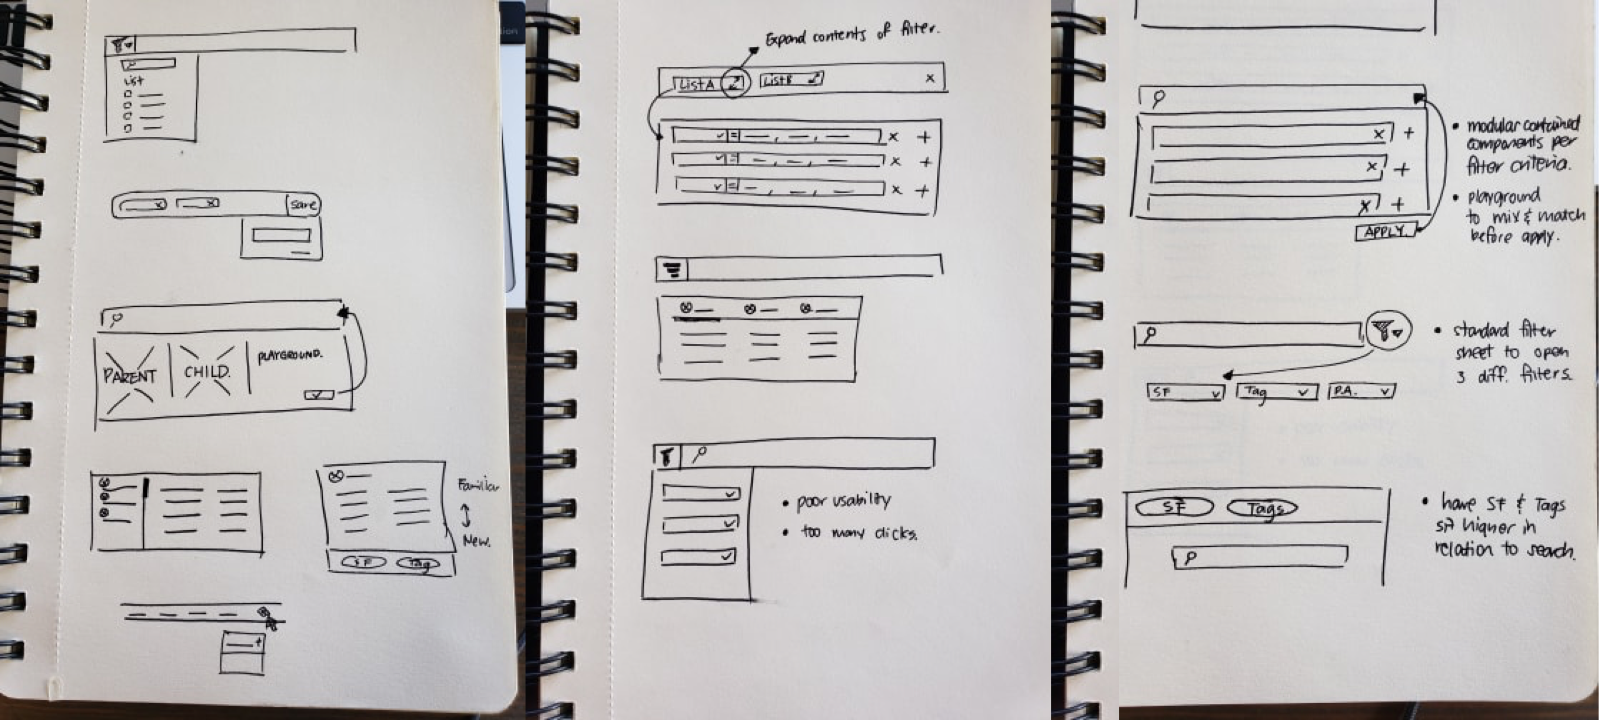 List
save
PARENT
CHILD.
PLAYGROUND.
Familiar
New.
SF
Tag
Expand contents of filter.
ListA
ListB
x
x +
x +
x +
• poor usability
• too many clicks.
x +
x +
x +
APPLY.
• modular contained
components per
filter criteria.
• playground
to mix & match
before apply.
SF
Tag
P.A.
• standard filter
sheet to open
3 diff. filters.
SF
Tags
• have SF & Tags
sit higher in
relation to search.